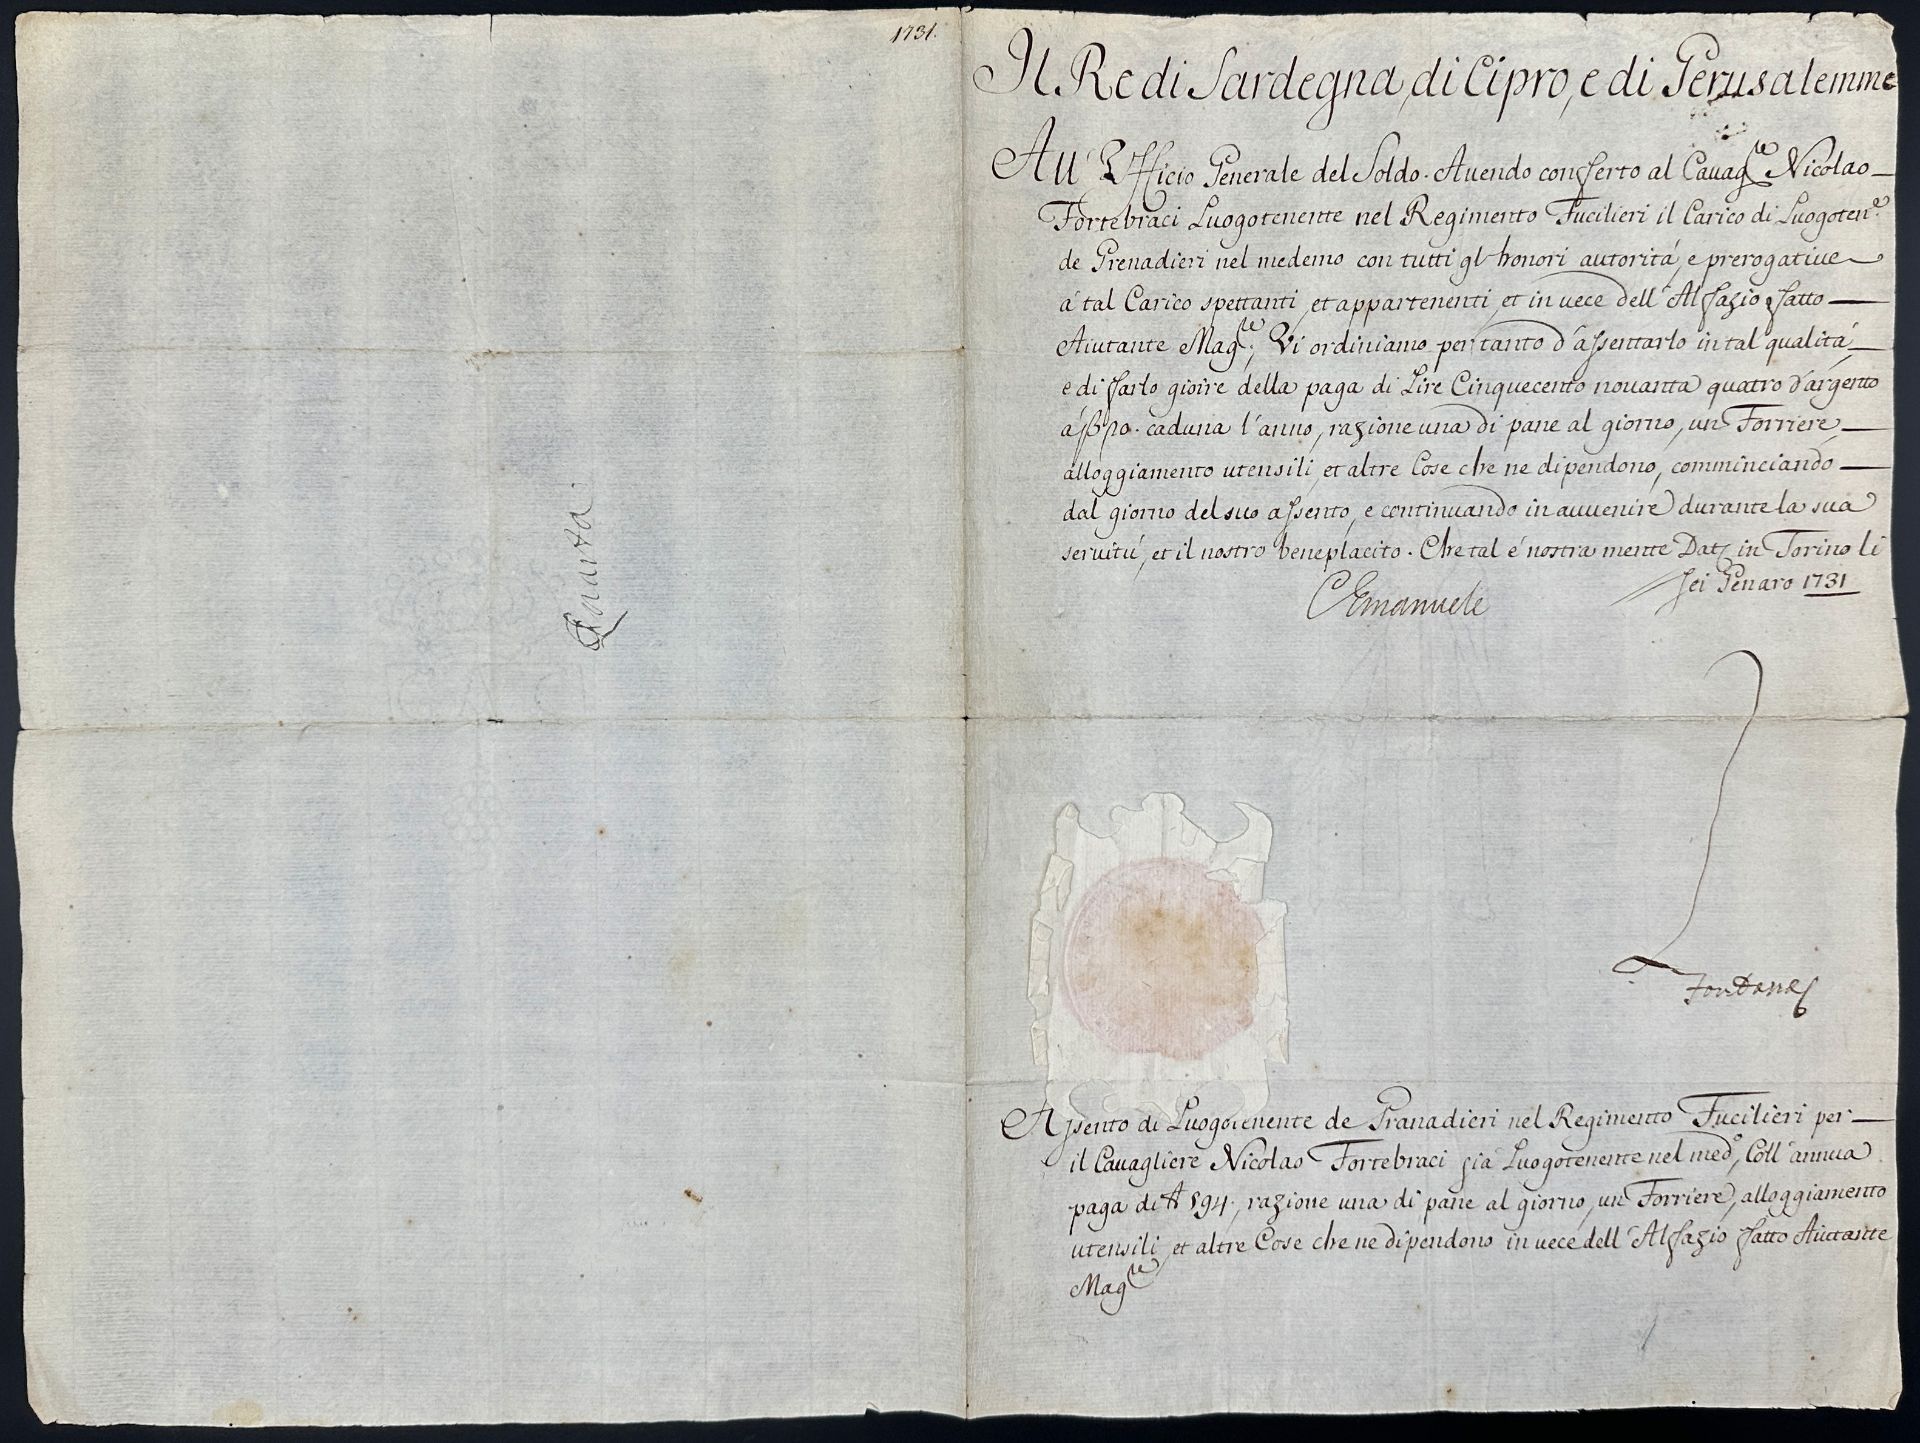 1731.
Quarta
Il Re di Sardegna, di Cipro, e di Gerusalemme
All' Ufficio Generale del Soldo. Avendo conferto al Cavag.re Nicolao
Fortebraci Luogotenente nel Regimento Fucilieri il Carico di Luogoten.e
de Grenadieri nel medemo con tutti gl' honori autoritá, e prerogative
á tal Carico spettanti, et appartenenti, et in vece dell' Alfazio fatto
Aiutante Mag.re; Vi ordiniamo per tanto d'assentarlo in tal qualitá,
e di farlo gioire della paga di Lire Cinquecento novanta quatro d'argento
á caduna l'anno, razione una di pane al giorno, un Forriere,
alloggiamento utensili, et altre Cose che ne dipendono, comminciando
dal giorno del suo assento, e continuando in avvenire durante la sua
servitú, et il nostro beneplacito. Che tal é nostra mente Dat. in Torino li
sei Genaro 1731
C Emanuele
Fontana
Assento di Luogotenente de Granadieri nel Regimento Fucilieri per
il Cavagliere Nicolao Fortebraci giá Luogotenente nel med.o, Coll' annua
paga di 594., razione una di pane al giorno, un Forriere, alloggiamento
utensili, et altre Cose che ne dipendono in vece dell' Alfazio fatto Aiutante
Mag.re